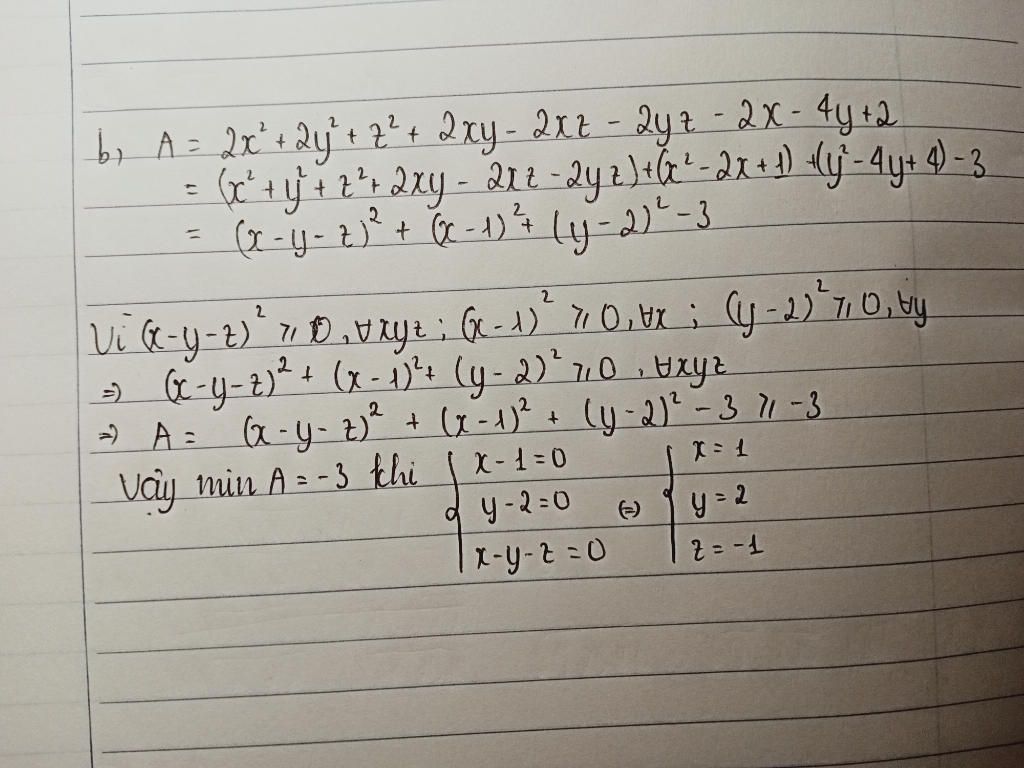 b, A = 2x² + 2y² + z² + 2xy - 2xz - 2yz - 2x - 4y + 2
= (x² + y² + z² + 2xy - 2xz - 2yz) + (x² - 2x + 1) + (y² - 4y + 4) - 3
= (x - y - z)² + (x - 1)² + (y - 2)² - 3
Vì (x - y - z)² ⩾ 0, ∀xyz ; (x - 1)² ⩾ 0, ∀x ; (y - 2)² ⩾ 0, ∀y
⇒ (x - y - z)² + (x - 1)² + (y - 2)² ⩾ 0, ∀xyz
⇒ A = (x - y - z)² + (x - 1)² + (y - 2)² - 3 ⩾ -3
Vậy min A = -3 khi { x - 1 = 0 { x = 1
y - 2 = 0 ⇔ y = 2
x - y - z = 0 z = -1